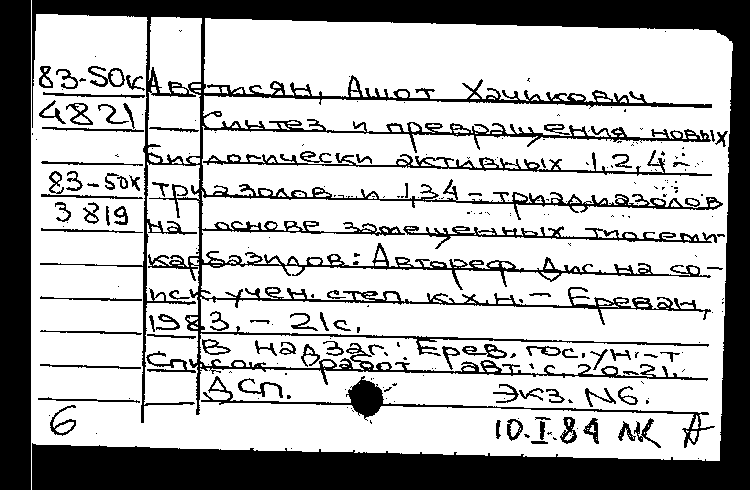 83-50к Аветисян, Ашот Хачикович
4821 Синтез и превращения новых
биологически активных 1,2,4-
83-50к триазолов и 1,3,4-триадиазолов
3819 на основе замещенных тиосеми-
карбазидов: Автореф. Дис. на со-
иск. учен. степ. к.х.н. - Ереван,
1983. - 21с.
В надзаг.: Ерев. гос. ун-т
Список работ авт.: с. 20-21.
ДСП. Экз. N6.
6 10.I.84 NK